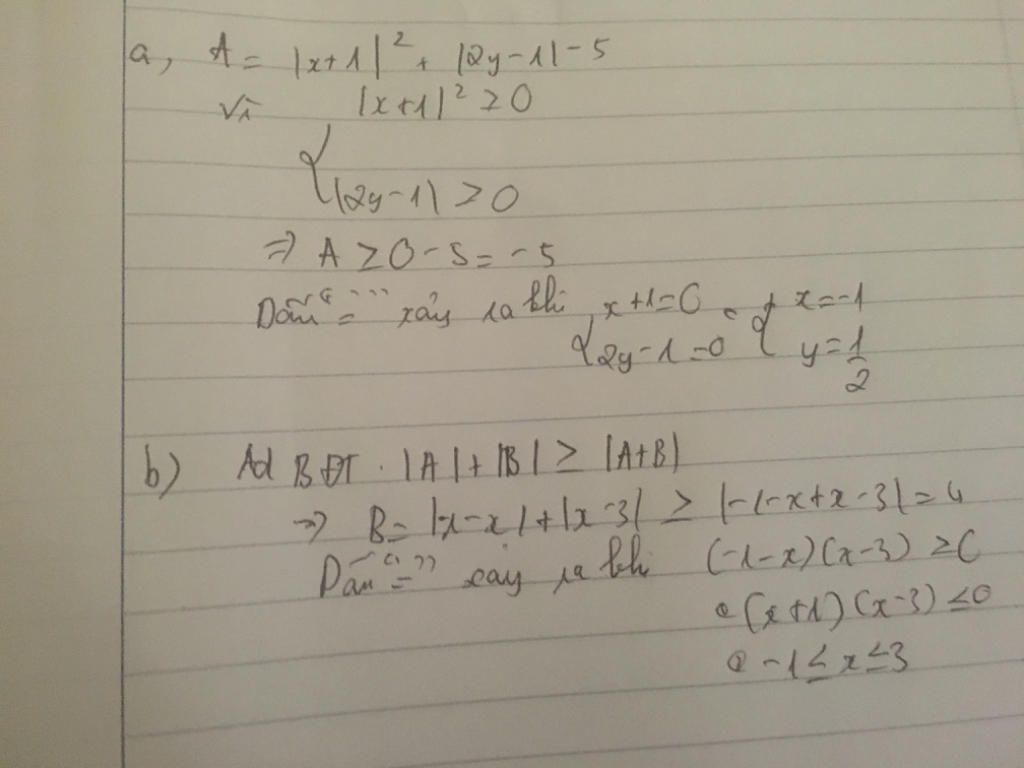 a, A = |x+1|² + |2y-1| - 5
Vì |x+1|² ≥ 0
{ |2y-1| ≥ 0
=> A ≥ 0 - 5 = -5
Dấu "=" xảy ra khi { x+1=0 { x=-1
2y-1=0 y=1/2
b) Ad BĐT . |A|+|B| ≥ |A+B|
=> B= |-1-x|+|x-3| ≥ |-1-x+x-3|=4
Dấu "=" xảy ra khi (-1-x)(x-3) ≥0
(x+1)(x-3) ≤0
-1≤x≤3